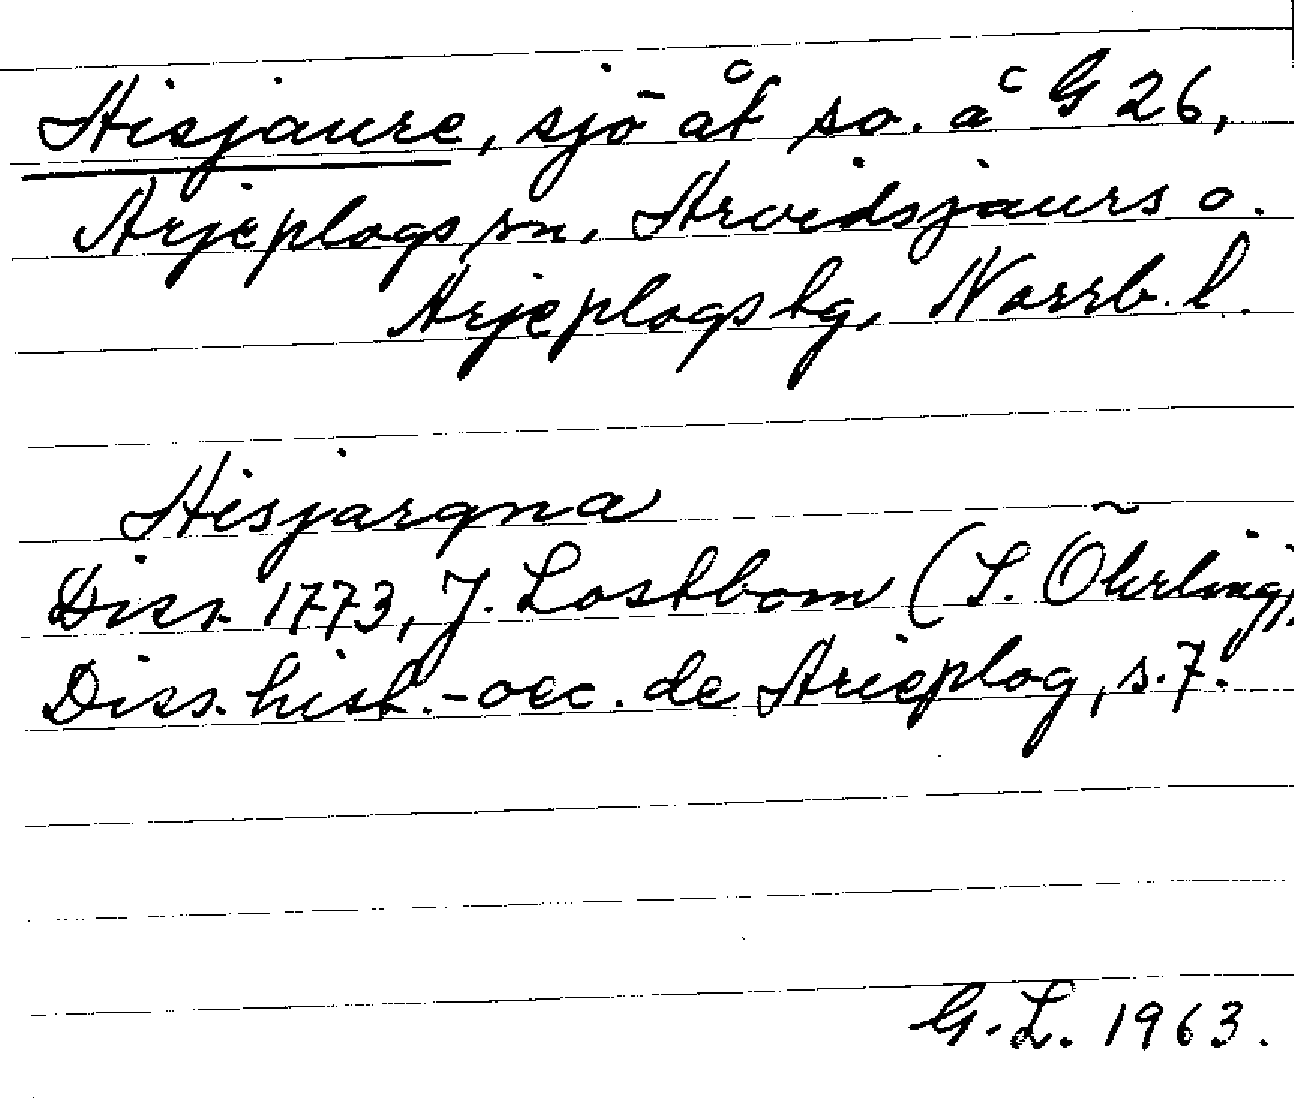 Hisjaure, sjö åt so. å G 26,
Arjeplogs sn, Arvidsjaurs o.
Arjeplogs tg, Norrb. l.
Hisjargna
Diss. 1773, J. Lostbom (S. Öhrling),
Diss. hist.-oec. de Arieplog, s. 7.
G. L. 1963.